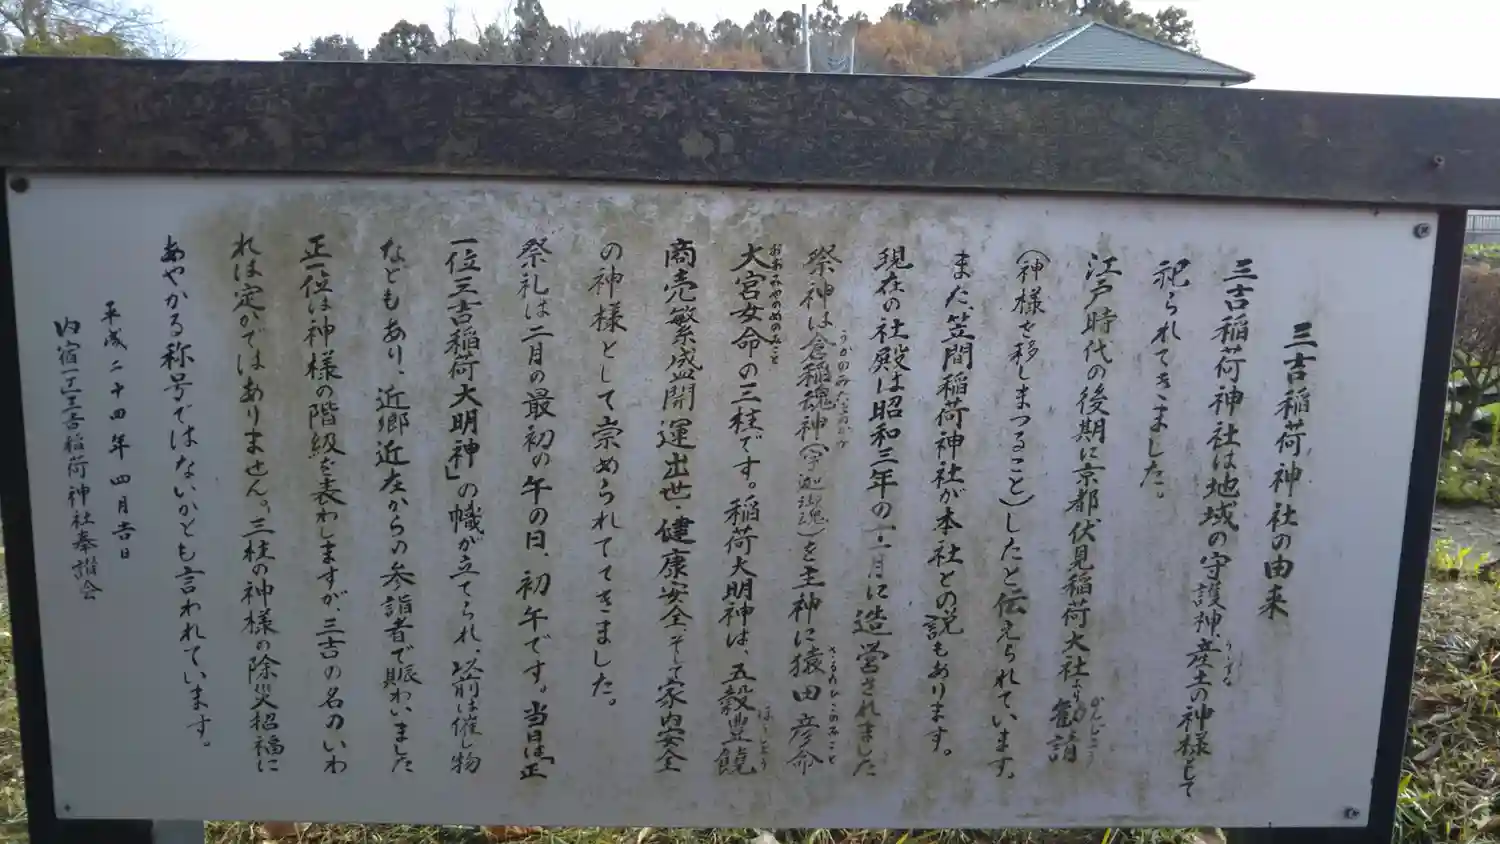 三吉稲荷神社の由来
三吉稲荷神社は地域の守護神・産土の神様として
うぶすな
祀られてきました。
江戸時代の後期に京都伏見稲荷大社より勧請
かんじょう
(神様を移しまつること)したと伝えられています。
また、笠間稲荷神社が本社との説もあります。
現在の社殿は昭和三年の一・二月に造営されました
祭神は倉稲魂神(宇迦魂)を主神に猿田彦命
うかのみたまのかみ
さるたひこのみこと
大宮女命の三柱です。稲荷大明神は、五穀豊饒
おおみやのめのみこと
ほうじょう
商売繁盛開運出世・健康安全そして家内安全
の神様として崇められててきました。
祭礼は二月の最初の午の日、初午です。当日は「正
一位三吉稲荷大明神」の幟が立てられ、以前は催し物
などもあり、近郷近在からの参詣者で賑わいました
正一位は神様の階級を表わしますが、三吉の名のいわ
れは定かではありません。三柱の神様の除災招福に
あやかる称号ではないかとも言われています。
平成二十四年四月吉日
内宿三吉稲荷神社奉讃会